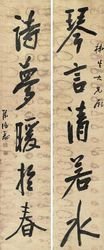 琴言清若水
詩夢暖於春